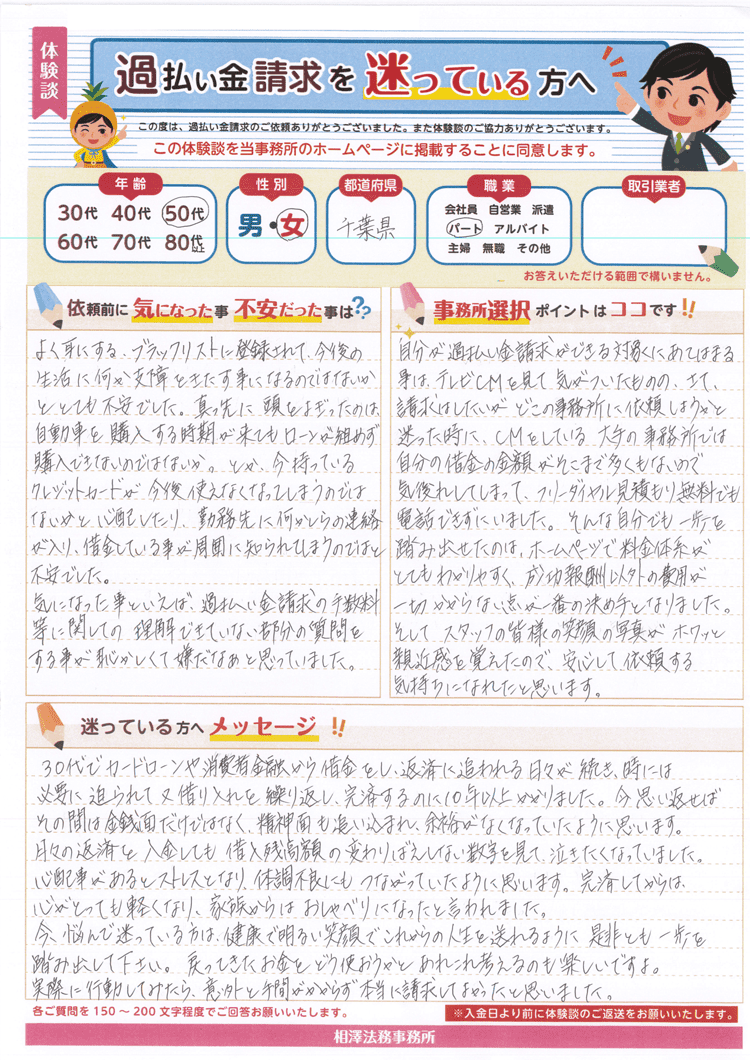 体験談
過払い金請求を迷っている方へ
この度は、過払い金請求のご依頼ありがとうございました。また体験談のご協力ありがとうございます。
この体験談を当事務所のホームページに掲載することに同意します。
年齢
30代 40代 50代
60代 70代 80代以上
性別
男・女
都道府県
千葉県
職業
会社員 自営業 派遣
パート アルバイト
主婦 無職 その他
取引業者
お答えいただける範囲で構いません。
依頼前に気になった事 不安だった事は??
よく耳にする、ブラックリストに登録されて、今後の
生活に何か支障をきたす事になるのではないか
ととても不安でした。真っ先に頭をよぎったのは、
自動車を購入する時期が来てもローンが組めず
購入できないのではないか。とか、今持っている
クレジットカードが今後使えなくなってしまうのでは
ないかと心配したり、勤務先に何かしらの連絡
が入り、借金している事が周囲に知られてしまうのではと
不安でした。
気になった事といえば、過払い金請求の手数料
等に関しての理解できていない部分の質問を
する事が恥かしくて嫌だなあと思っていました。
事務所選択ポイントはココです!!
自分が過払い金請求ができる対象にあてはまる
事は、テレビCMを見て気がついたものの、さて、
請求はしたいがどこの事務所に依頼しようかと
迷った時に、CMをしている大手の事務所では
自分の借金の金額がそこまで多くもないので
気後れしてしまって、フリーダイヤル見積もり無料でも
電話できずにいました。そんな自分でも一歩を
踏み出せたのは、ホームページで料金体系が
とてもわかりやすく、成功報酬以外の費用が
一切かからない点が一番の決め手となりました。
そしてスタッフの皆様の笑顔の写真がホワッと
親近感を覚えたので、安心して依頼する
気持ちになれたと思います。
迷っている方へメッセージ!!
30代でカードローンや消費者金融から借金をし、返済に追われる日々が続き、時には
必要に迫られて又借り入れを繰り返し、完済するのに10年以上かかりました。今思い返せば
その間は金銭面だけではなく、精神面も追い込まれ、余裕がなくなっていたように思います。
日々の返済を入金しても借入残高額の変わりばえしない数字を見て、泣きたくなっていました。
心配事があるとストレスとなり、体調不良にもつながっていたように思います。完済してからは、
心がとっても軽くなり、家族からはおしゃべりになったと言われました。
今、悩んで迷っている方は、健康で明るい笑顔でこれからの人生を送れるように是非とも一歩を
踏み出して下さい。戻ってきたお金をどう使おうかとあれこれ考えるのも楽しいですよ。
実際に行動してみたら、意外と手間がかからず本当に請求してよかったと思いました。
各ご質問を150〜200文字程度でご回答お願いいたします。
※入金日より前に体験談のご返送をお願いいたします。
相澤法務事務所